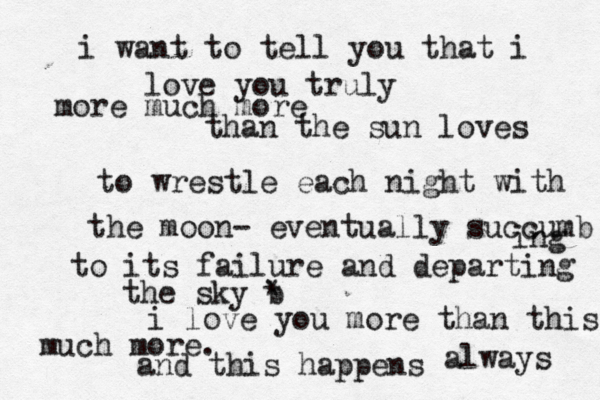 i want to tell you that i
love you truly
more much more
than the sun loves
to wrestle each night with
the moon- eventually succumb
ing
to its failure and departing
the sky
i love you more than this
much more.
and this happens always